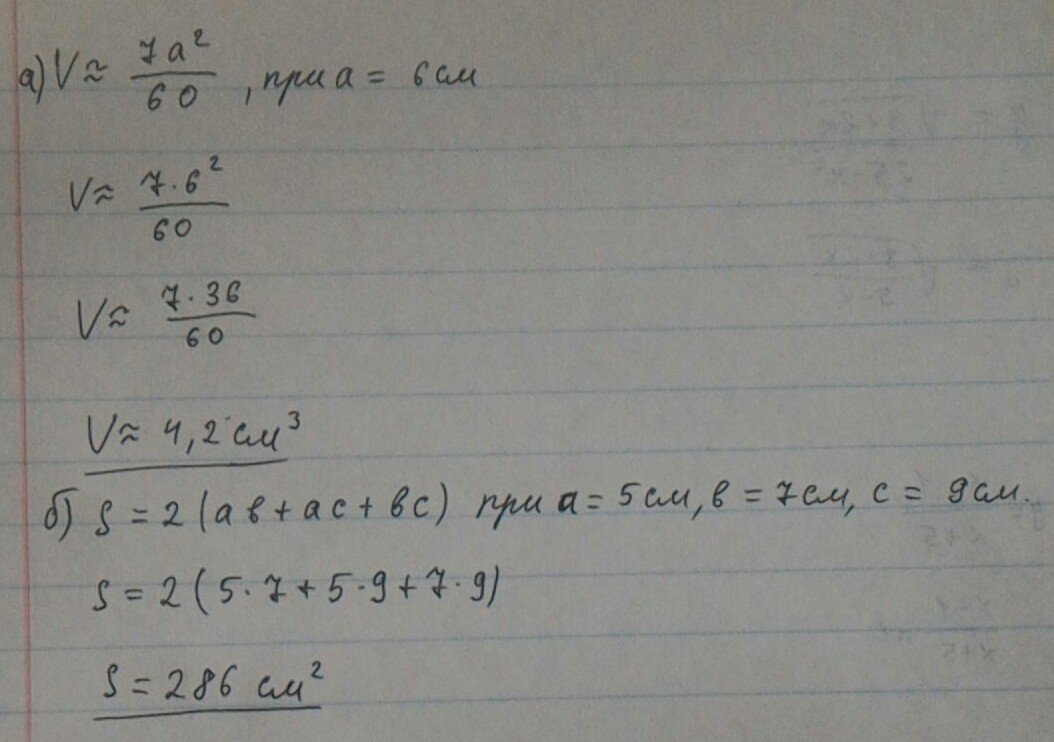 а) V ≈ 7a²/60, при a = 6 см
V ≈ 7·6²/60
V ≈ 7·36/60
V ≈ 4,2 см³
б) S = 2(ав+ас+вс) при а = 5см, в = 7см, с = 9см.
S = 2(5·7+5·9+7·9)
S = 286 см²